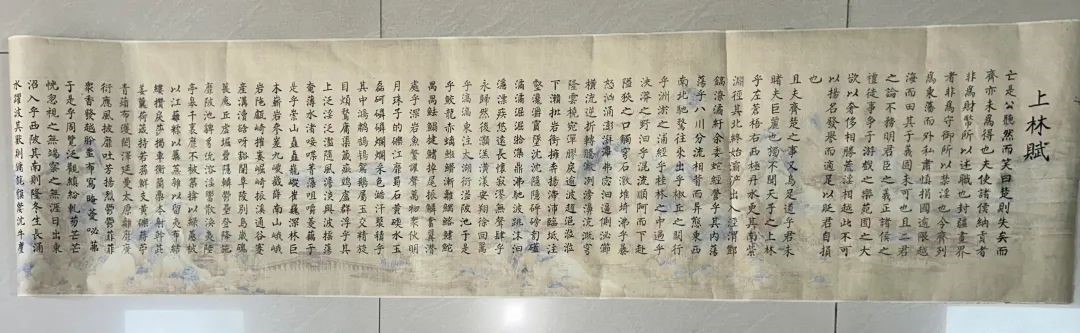 上林賦
亡是公听然而笑曰楚則失矣而
齊亦未爲得也夫使諸侯納貢者
非爲財幣所以述職也封疆畫界
者非爲守禦所以禁淫也今齊列
爲東藩而外私肅慎捐國逾限越
海而田其于義固未可也且二君
之論不務明君臣之義正諸侯之
禮徒事爭于游戲之樂苑囿之大
欲以奢侈相勝荒淫相越此不可
以揚名發譽而適足以貶君自損
也
且夫齊楚之事又烏足道乎君未
睹夫巨麗也獨不聞天子之上林
乎左蒼梧右西極丹水更其南紫
淵徑其北終始灞滻出入涇渭酆
鎬潦潏紆余委蛇經營乎其內蕩
蕩乎八川分流相背而異態東西
南北馳騖往來出乎椒丘之闕行
乎洲淤之浦經乎桂林之中過乎
泱漭之野汩乎混流順阿而下赴
隘狹之口觸穹石激堆埼沸乎暴
怒洶涌澎湃滭弗宓汩逼側泌瀄
橫流逆折轉騰潎冽滂濞沆溉穹
隆雲橈宛潬膠戾逾波趨浥涖涖
下瀨批岩衝擁奔揚滯沛臨坻注
壑瀺灂霣墜沈沈隱隱砰磅訇礚
潏潏淈淈湁潗鼎沸馳波跳沫汩
漂疾悠遠長懷寂漻無聲肆乎
永歸然後灝溔潢漾安翔徐回翯
乎滈滈東注太湖衍溢陂池于是
乎蛟龍赤螭漸離鰅鰫鰬魠
禺禺魼鰨揵鰭掉尾振鱗奮翼潛
處乎深岩魚鱉讙聲萬物衆夥明
月珠子的皪江靡蜀石黃碝水玉
磊砢磷磷爛爛采色澔汗藂積乎
其中鴻鷫鵠鴇鴐鵝屬玉交精旋
目煩鶩庸渠箴疵鵁盧群浮乎其
上泛淫泛濫隨風澹淡與波搖蕩
奄薄水渚唼喋菁藻咀嚼菱藕于
是乎崇山矗矗巃嵷崔巍深林巨
木嶄岩參差九嵕巀嶭南山峨峨
岩陁甗崎摧崣崛崎振溪通谷蹇
產溝瀆谽呀豁閜阜陵別島崴磈
廆丘虛堀礨隱轔鬱登降施
靡陂池貏豸沇溶淫鬻散渙夷陸
亭皋千里靡不被築掩以綠蕙被
以江蘺糅以蘪蕪雜以留夷布結
縷攢戾莎揭車衡蘭槀本射干茈
姜蘘荷葴持若蓀鮮支黃礫蔣苧
青薠布濩閎澤延曼太原離靡廣
衍應風披靡吐芳揚烈鬱鬱菲菲
衆香發越肸蠁布寫晻薆咇茀
于是乎周覽泛觀縝紛軋芴芒芒
恍忽視之無端察之無涯日出東
沼入乎西陂其南則隆冬生長涌
水躍波其獸則旄貘沈牛麈